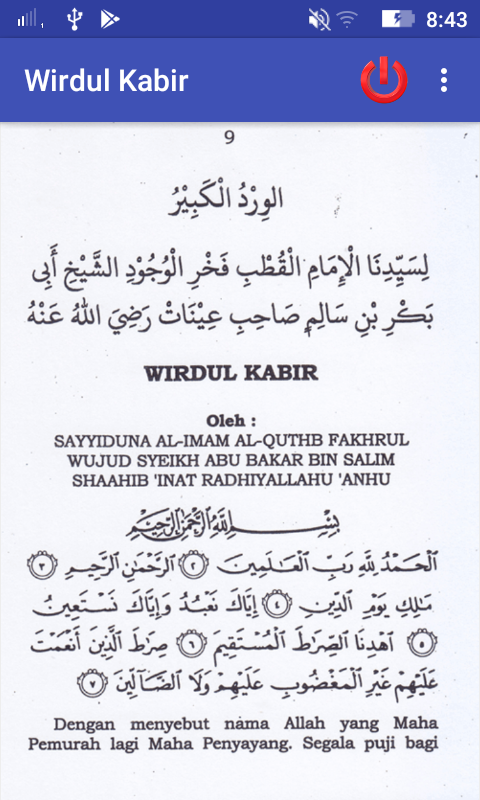 8:43
Wirdul Kabir
9
الوِرْدُ الْكَبِيْرُ
لِسَيِّدِنَا الْإِمَامِ الْقُطْبِ فَخْرِ الْوُجُوْدِ الشَّيْخِ أَبِى
بَكْرِ بْنِ سَالِمٍ صَاحِبِ عِيْنَاتْ رَضِيَ اللهُ عَنْهُ
WIRDUL KABIR
Oleh :
SAYYIDUNA AL-IMAM AL-QUTHB FAKHRUL
WUJUD SYEIKH ABU BAKAR BIN SALIM
SHAAHIB 'INAT RADHIYALLAHU 'ANHU
بِسْمِ اللهِ الرَّحْمٰنِ الرَّحِيْمِ
الْحَمْدُ لِلَّهِ رَبِّ الْعَـٰلَمِينَ ٢ الرَّحْمَـٰنِ الرَّحِيمِ ٣
مَـٰلِكِ يَوْمِ الدِّينِ ٤ إِيَّاكَ نَعْبُدُ وَإِيَّاكَ نَسْتَعِينُ
٥ اهْدِنَا الصِّرَٰطَ الْمُسْتَقِيمَ ٦ صِرَٰطَ الَّذِينَ أَنْعَمْتَ
عَلَيْهِمْ غَيْرِ الْمَغْضُوبِ عَلَيْهِمْ وَلَا الضَّآلِّينَ ٧
Dengan menyebut nama Allah yang Maha
Pemurah lagi Maha Penyayang. Segala puji bagi